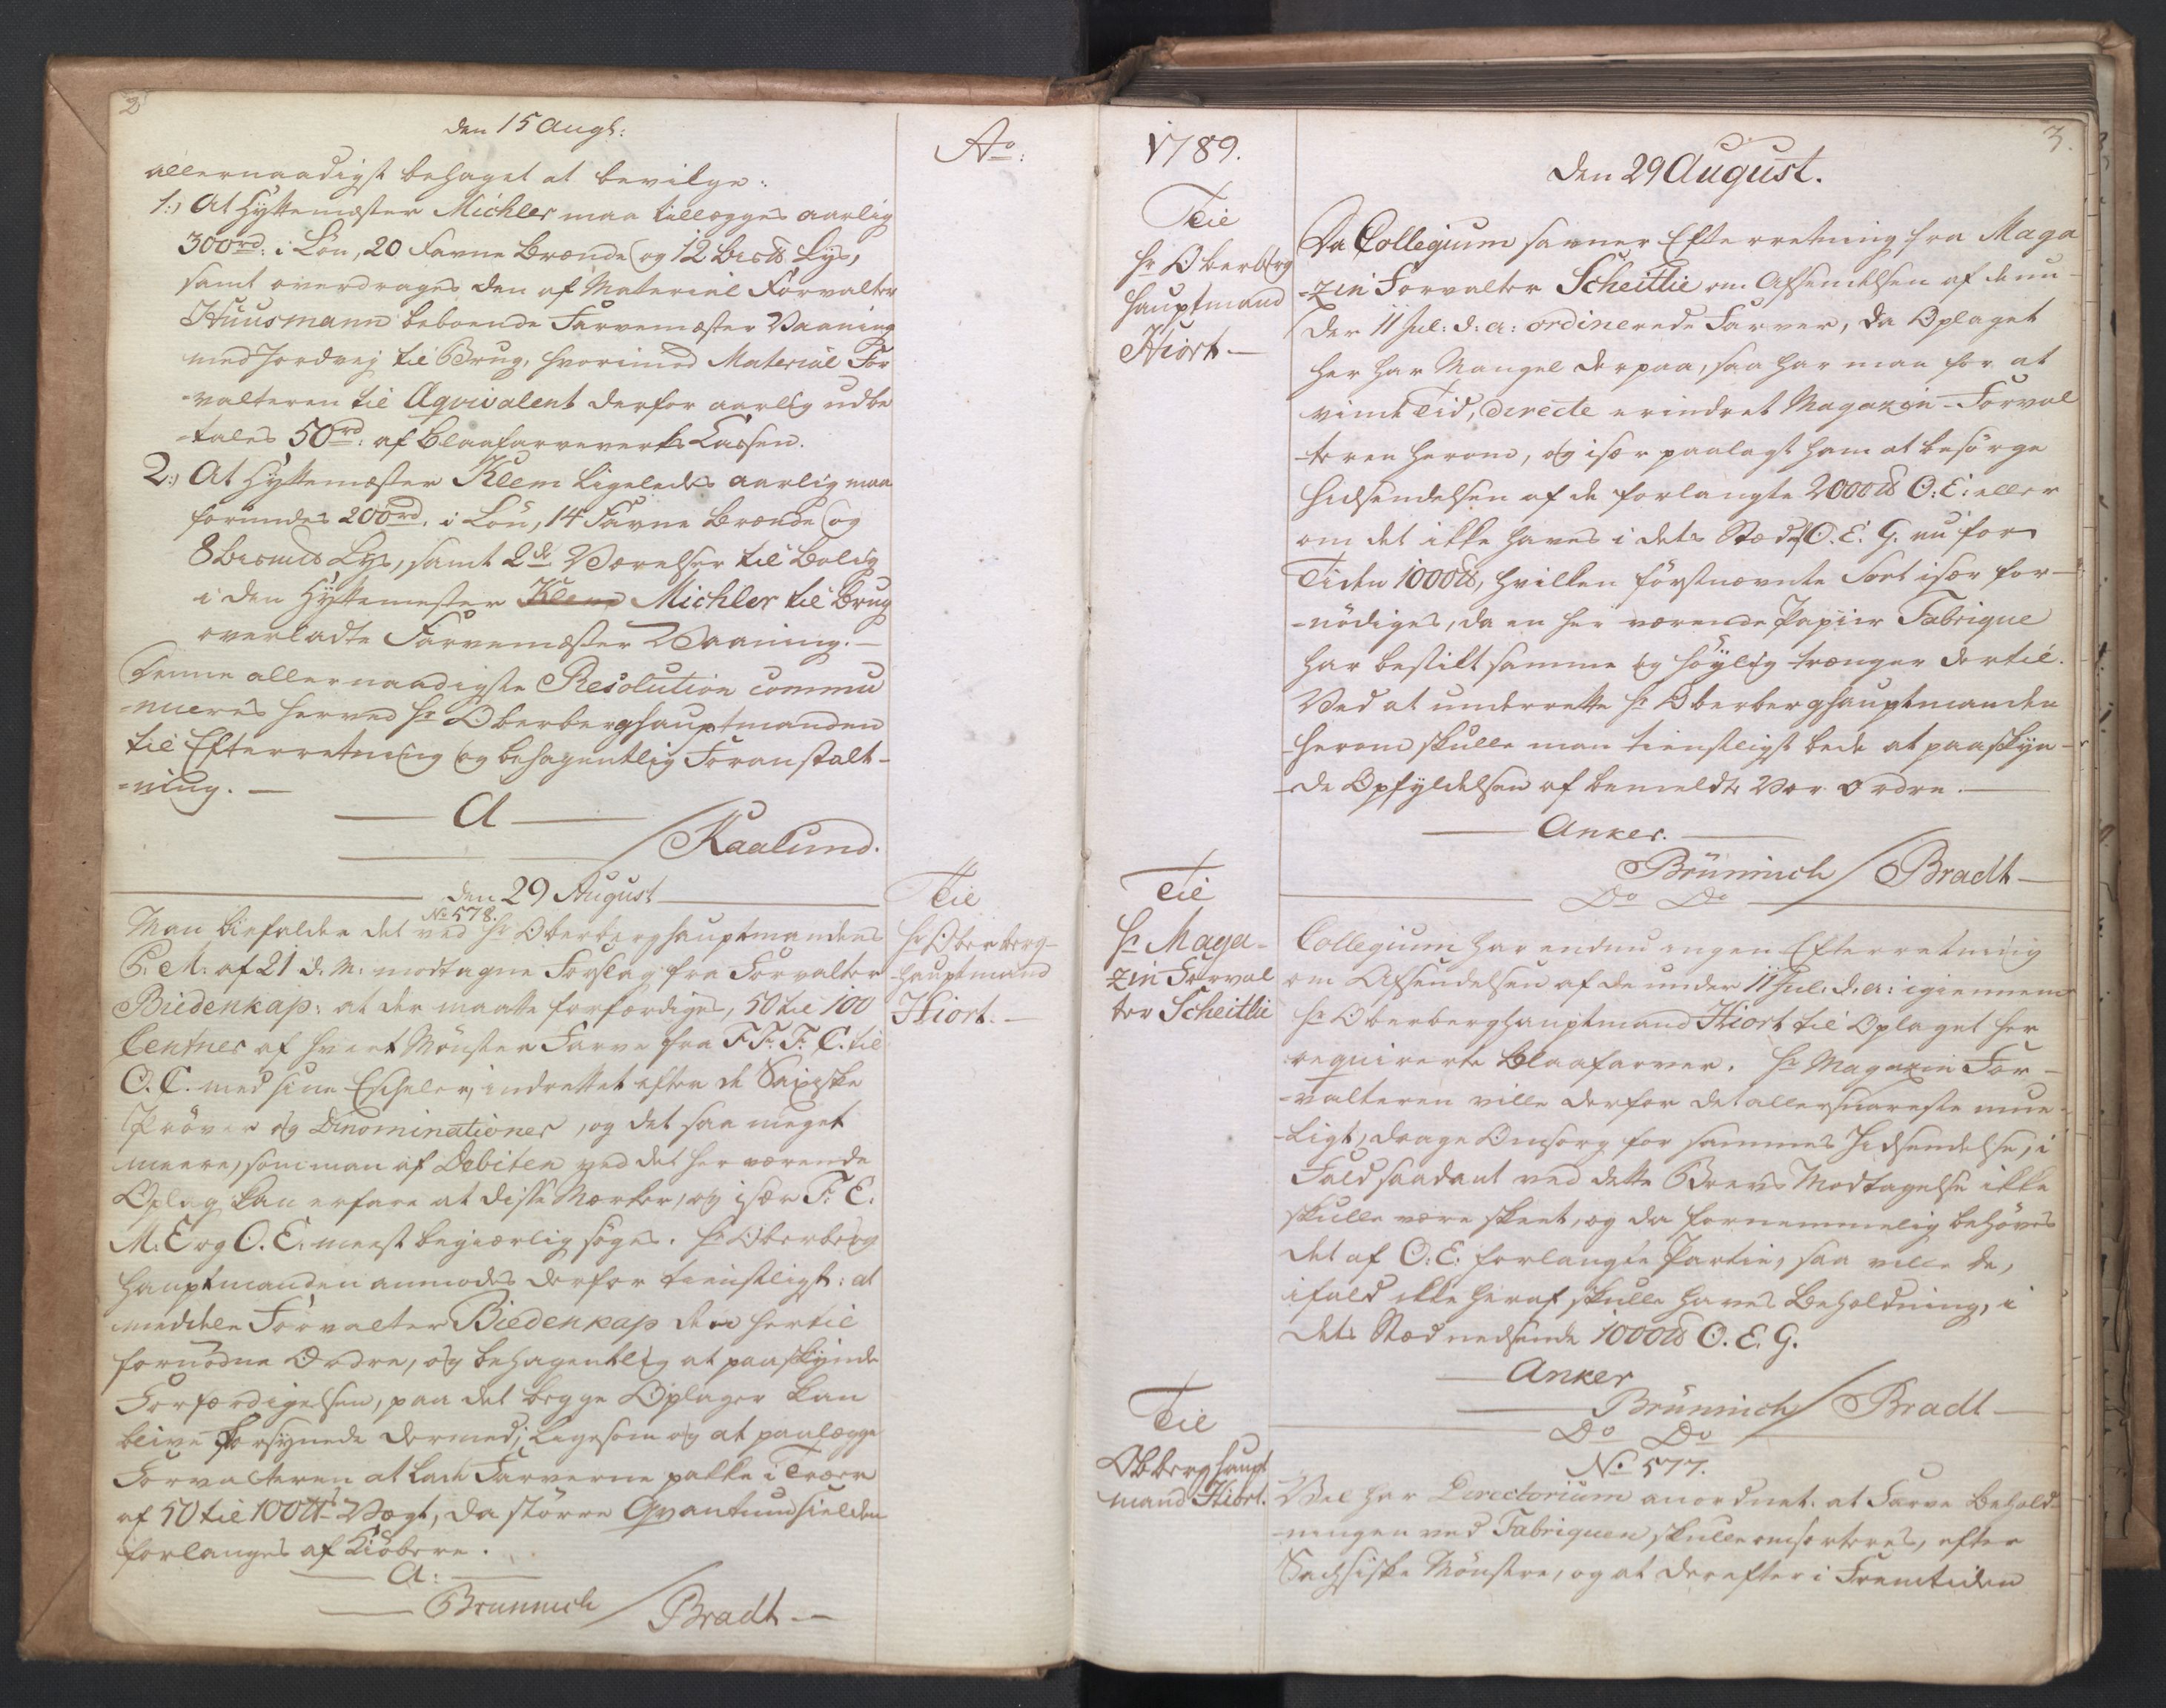 2
den 15 Augt:
allernaadigst behaget at bevilge:
1:) At Hyttemester Michler maa tillægges aarlig
300rd: i Løn, 20 Favne Brænde og 12 Bis℔ Lys,
samt overdrages den af Material Forvalter
Huusmann beboende Farvemester Vaaning
med Jordvej til Brug, hvorimod Material For
-valteren til Æqvivalent derfor aarlig udbe
-tales 50rd: af Blaafarveverks Cassen.
2:) At Hyttemester Klem ligeledes aarlig maa
forundes 200rd. i Løn, 14 Favne Brænde og
8 Bismd Lys, samt 2de Værelser til Bolig
i den Hyttemester Klem Michler til Brug
overladte Farvemester Vaaning. —
Denne allernaadigste Resolution commu
-niceres herved Hr Oberberghauptmanden
til Efterretning og behagentlig Foranstalt-
-ning. —
A
/ Kaalund.
den 29 August
No 578.
Til
Hr Oberberg-
-hauptmand
Hiort. —
Man bifalder det ved Hr Oberberghauptmandens
P. M: af 21 d. M: modtagne Forslag fra Forvalter
Biedenkap: at der maatte forfærdiges, 50 til 100
Centner af hvert Mønster Farve fra F. F. F. C. til
O. C. med sine Escheler, indrettet efter de Saxiske
Prøver og Denominationer, og det saa meget
meere, som man af Debiten ved det her værende
Oplag kan erfare at disse Mærker, og især F. E.
M. E og O. E. meest begiærlig søges. Hr Oberberg
hauptmanden anmodes derfor tienstligst: at
meddele Forvalter Biedenkap den hertil
fornødne Ordre, og behagentlig at paaskynde
Forfærdigelsen, paa det begge Oplager kan
blive forsynede dermed; ligesom og at paalægge
Forvalteren at lade Farverne pakke i Træer
af 50 til 100 ℔ Vægt, da større Qvantum sielden
forlanges af Kiøbere.
A:
Brünnich / Bradt —
Ao:
1789.
3.
den 29 August.
Til
Hr Oberberg
hauptmand
Hiort —
Da Collegium savner Efterretning fra Maga
-zin Forvalter Scheitlie om Afsendelsen af de un-
der 11 Jul: d: a: ordinerede Farver, da Oplaget
her har Mangel derpaa, saa har man for at
vinde Tid, directe erindret Magazin-Forval
-teren herom, og især paalagt ham at besørge
Hidsendelsen af de forlangte 2000 ℔ O: E: eller
om det ikke haves i dets Stæd af O. E. G. nu for
Tiden 1000 ℔, hvilken førstnævnte Sort især for-
-nødiges, da en her værende Papiir Fabrique
har bestilt samme og høylig trænger dertil.
Ved at underrette Hr Oberberghauptmanden
herom skulle man tienstligst bede at paaskyn-
-de Opfyldelsen af bemeldte Vor Ordre. —
Anker.
Brünnich / Bradt —
Do Do
Til
Hr Maga-
zin Forval
ter Scheitlie
Collegium har endnu ingen Efterretning
om Afsendelsen af de under 11 Jul: d: a: igiennem
Hr Oberberghauptmand Hiort til Oplaget her
requirerte Blaafarver. Hr Magazin For-
-valteren ville derfor det allersnareste mue-
-ligt, drage Omsorg for sammes Hidsendelse, i
Fald saadant ved dette Brevs Modtagelse ikke
skulle være skeet, og da fornemmelig behøves
det af O: E: forlangte Partie, saa ville De,
ifald ikke heraf skulle haves Beholdning, i
dets Stæd nedsende 1000 ℔ O. E. G.
Anker
Brünnich / Bradt —
Do Do
No 577.
Til
Obberghaupt
mand Hiort.
Vel har Directorium anordnet: at Farve Behold-
-ningen ved Fabriquen skulle omsorteres, efter
Sachsiske Mønstre, og at derefter i Fremtiden